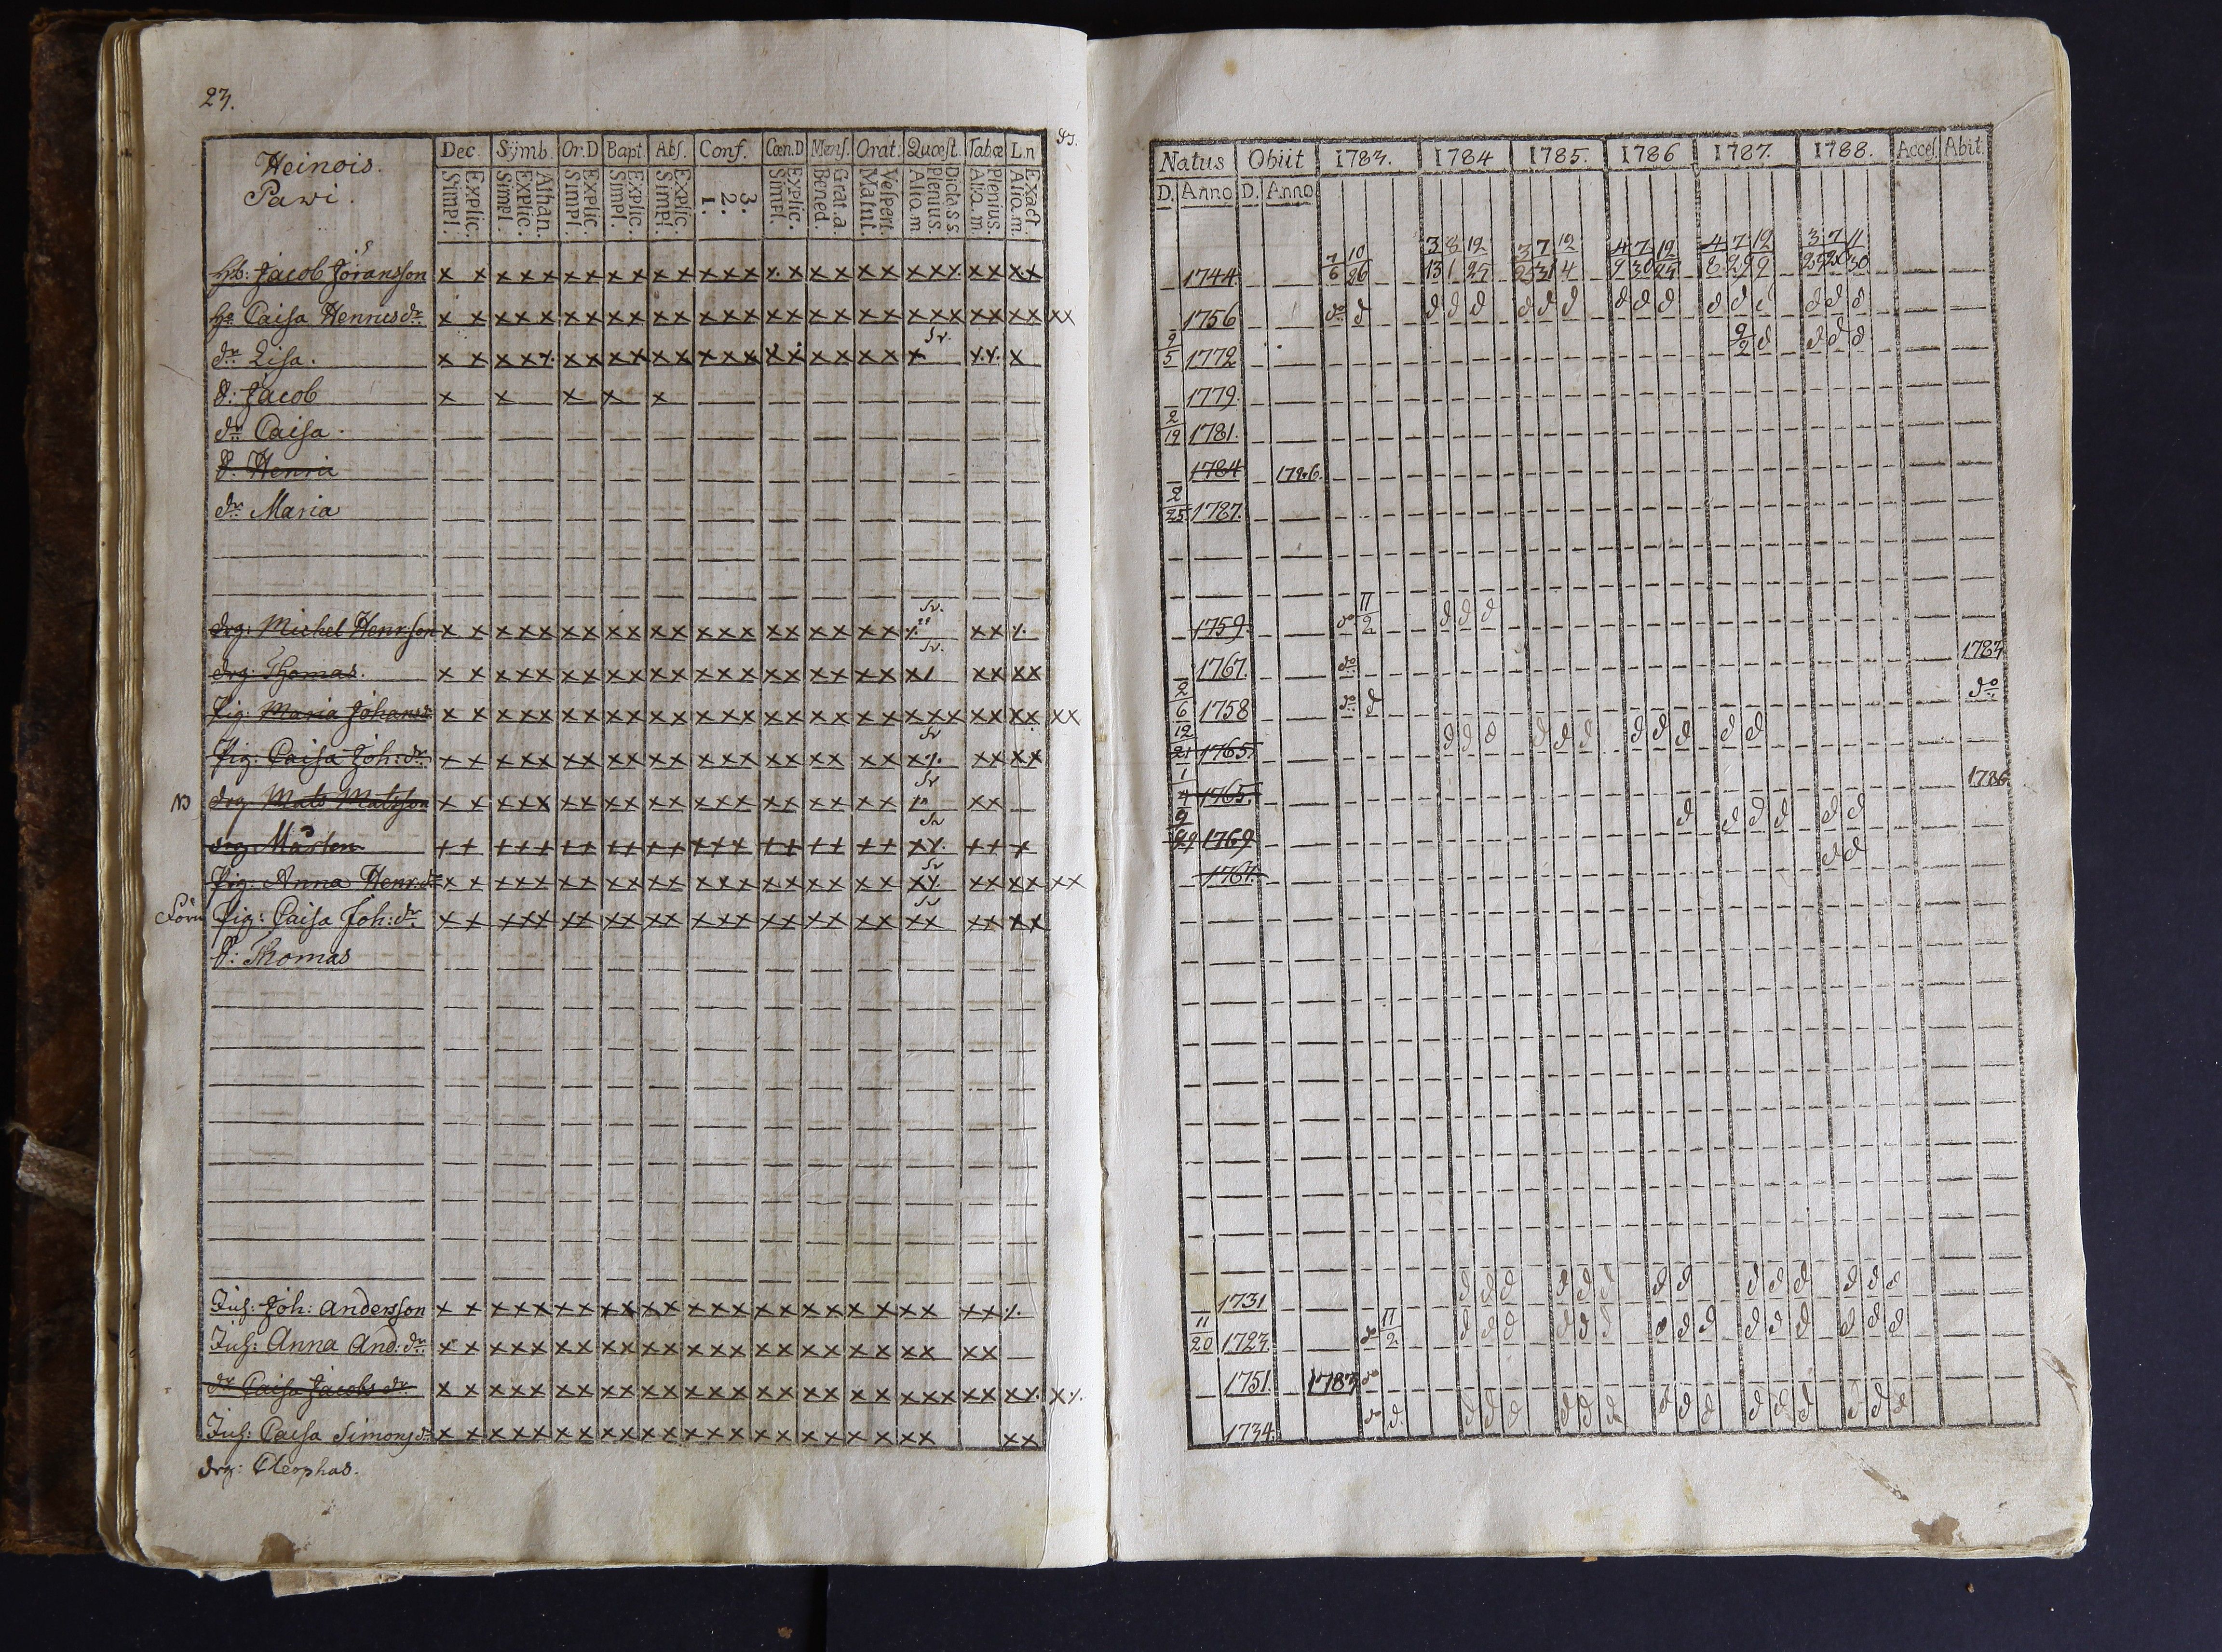 23.
Heinois.
Pawi.
Dec. Symb. Or.D Bapt. Abs. Conf. Cœn.D Mens. Orat. Quæst. Tabæ L.n
Simpl. Explic. Simpl. Explic. Athan. Simpl. Explic. Simpl. Explic. Simpl. Explic. 1. 2. 3. Simpl. Explic. Bened. Grat.a Matut. Vespert. Aliq.m Plenius. Dicta ss Aliq.m Plenius. Aliq.m Exact.
hb: Jacob Jöransson x x xxx xx xx xx xxx x x xx xx xxx xx xx
ha Caisa Henricsdr x x xxx xx xx xx xxx xx xx xx xxx xx xx xx
Sv.
dr Lisa. x x xxx xx xx xx xxx xx xx xx x x x x
S: Jacob x x x x x
dr Caisa
S: Henric
dr Maria
Sv.
drg: Michel Henr:son x x xxx xx xx xx xxx xx xx xx xx
Sv.
drg: Thomas. x x xxx xx xx xx xxx xx xx xx x/ xx xx
Pig: Maria Johansdr x x xxx xx xx xx xxx xx xx xx xxx xx xx xx
Sv
Pig: Caisa Joh:dr x x xxx xx xx xx xxx xx xx xx x xx xx
Sv
NB drg Mats Matsson x x xxx xx xx xx xxx xx xx xx xx
Sv
drg Mårten x x xxx xx xx xx xxx xx xx xx x xx x
Sv
Pig: Anna Henr:dr x x xxx xx xx xx xxx xx xx xx x xx xx xx
Sv
Pig: Caisa Joh:dr x x xxx xx xx xx xxx xx xx xx xx xx xx
S: Thomas
Inh: Joh: Andersson x x xxx xx xx xx xxx xx xx xx xx xx
Inh: Anna And:dr x x xxx xx xx xx xxx xx xx xx xx xx
dr Caisa Jacobsdr x x xxx xx xx xx xxx xx xx xx xxx xx x x
Inh: Caisa Simonsdr x x xxx xx xx xx xxx xx xx xx xx xx
drg: Cleophas.
Natus Obiit 1783. 1784 1785. 1786 1787. 1788. Acces. Abit.
D. Anno D. Anno
7 10 3 8 12 3 7 12 4 7 12 4 7 12 3 7 11
1744 6 26 13 1
1756 do d d d d d d d d d d d d d d d d
9
5 1772 9 2 d d d d
1779.
2
19 1781.
1784 1786.
2
25 1787.
1759. do 11 2 d d d
1767. do 1783
2
6 1758 do d do
12
21 1765. d d d d d d d d d d d
1
4 1765. 1786
9
29 1769 d d d d d d
1767. d d
1731 d d d d d d d d d d d d d d
11
20 1723. do 11 2 d d d d d d d d d d d d d d d
1751. 1783 do
1734. do d. d d d d d d d d d d d d d d d